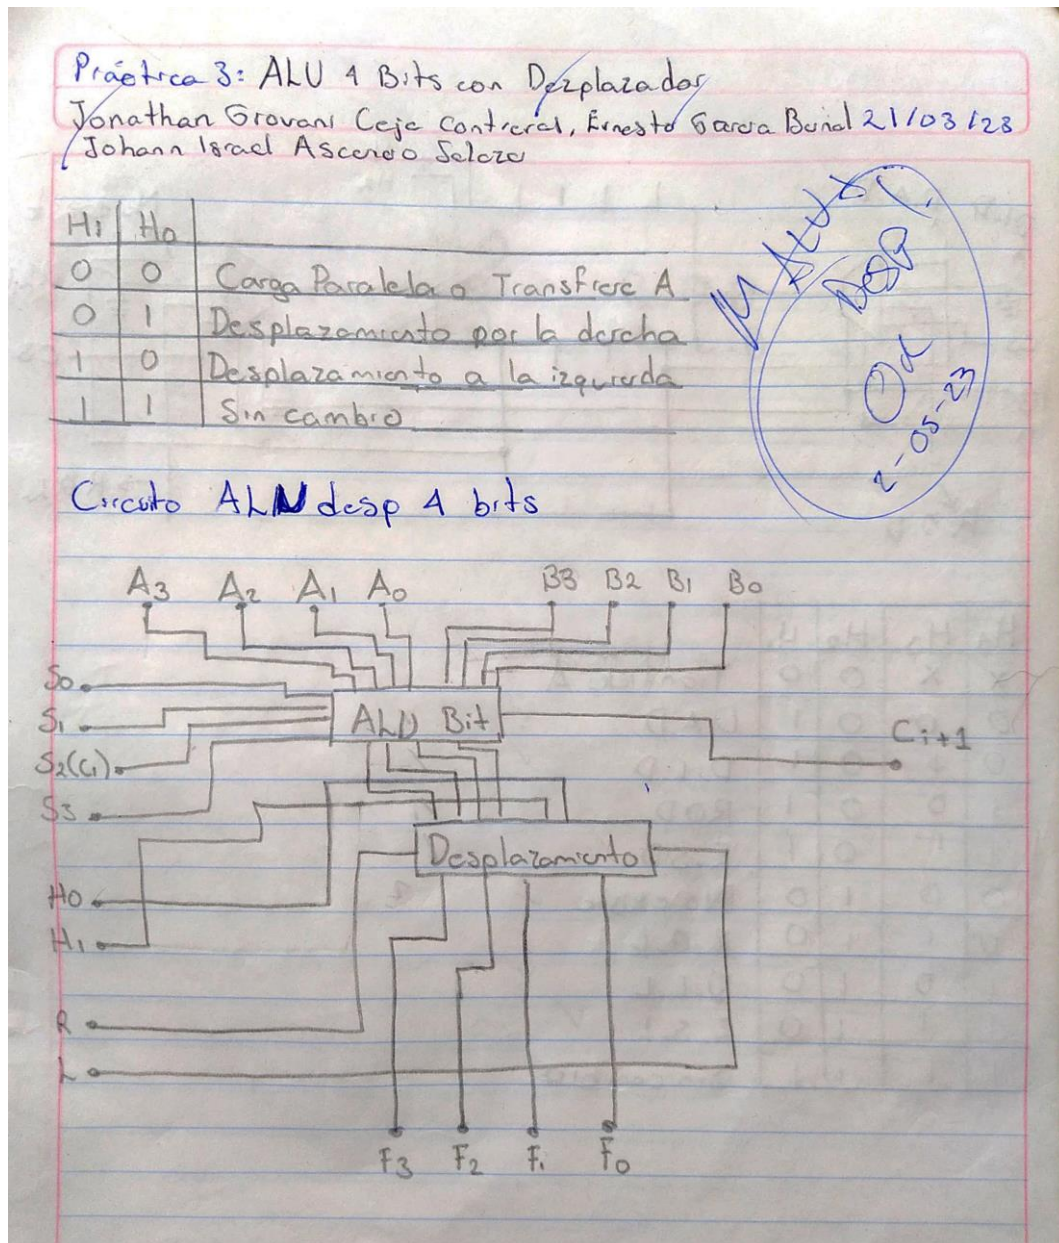 Práctica 3: ALU 4 Bits con Dezplazador
Jonathan Giovani Ceja Contreras, Ernesto Garcia Bernal 21/03/23
Johann Israel Ascencio Salaza
H1 H0
0 0 Carga Paralela o Transfiere A
0 1 Desplazamiento por la derecha
1 0 Desplazamiento a la izquierda
1 1 Sin cambio
ALU y
Desp
Ok
2-05-23
Circuito ALU desp 4 bits
A3 A2 A1 A0 B3 B2 B1 B0
S0
S1
ALU Bit
Ci+1
S2(Ci)
S3
Desplazamiento
H0
H1
R
L
F3 F2 F1 F0